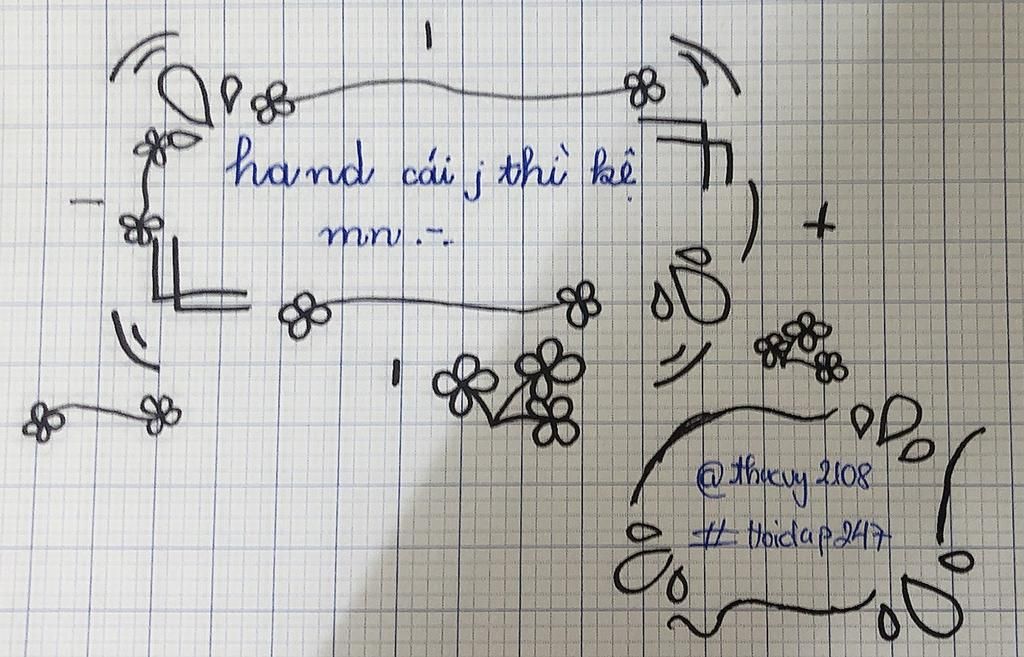 hand cái j thì kệ
mn .-.
@thucvy2108
# Hoidap247